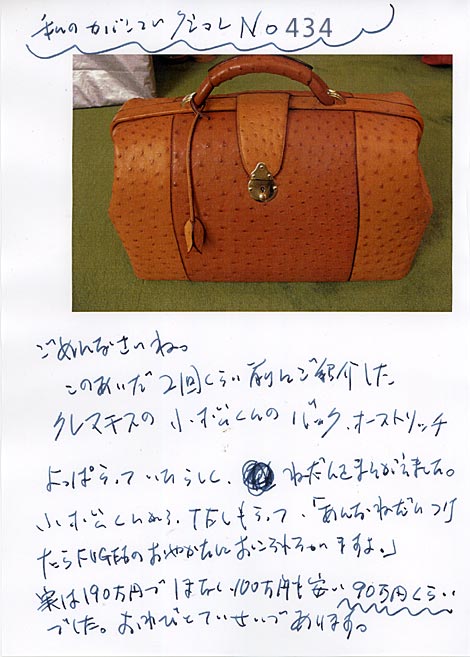 私のカバンコレクション No 434
ごめんなさいね。
このあいだ 2回くらい前にご紹介した
クレマチスの 小松くんの バック、オーストリッチ
よっぱらっていたらしく、 ねだんをまちがえました。
くんから、TELもらって、「あんなねだんつけ
たらFUGEEのおやかたにおこられちゃいますよ。」
実は190万円ではない、100万円も安い 90万円くらい
でした。おわびとていせいであります。